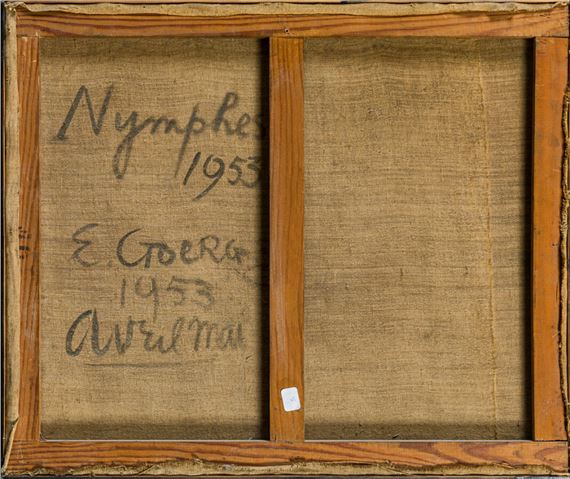 Nymphes
1953
E. GOERG
1953
Aveil mai